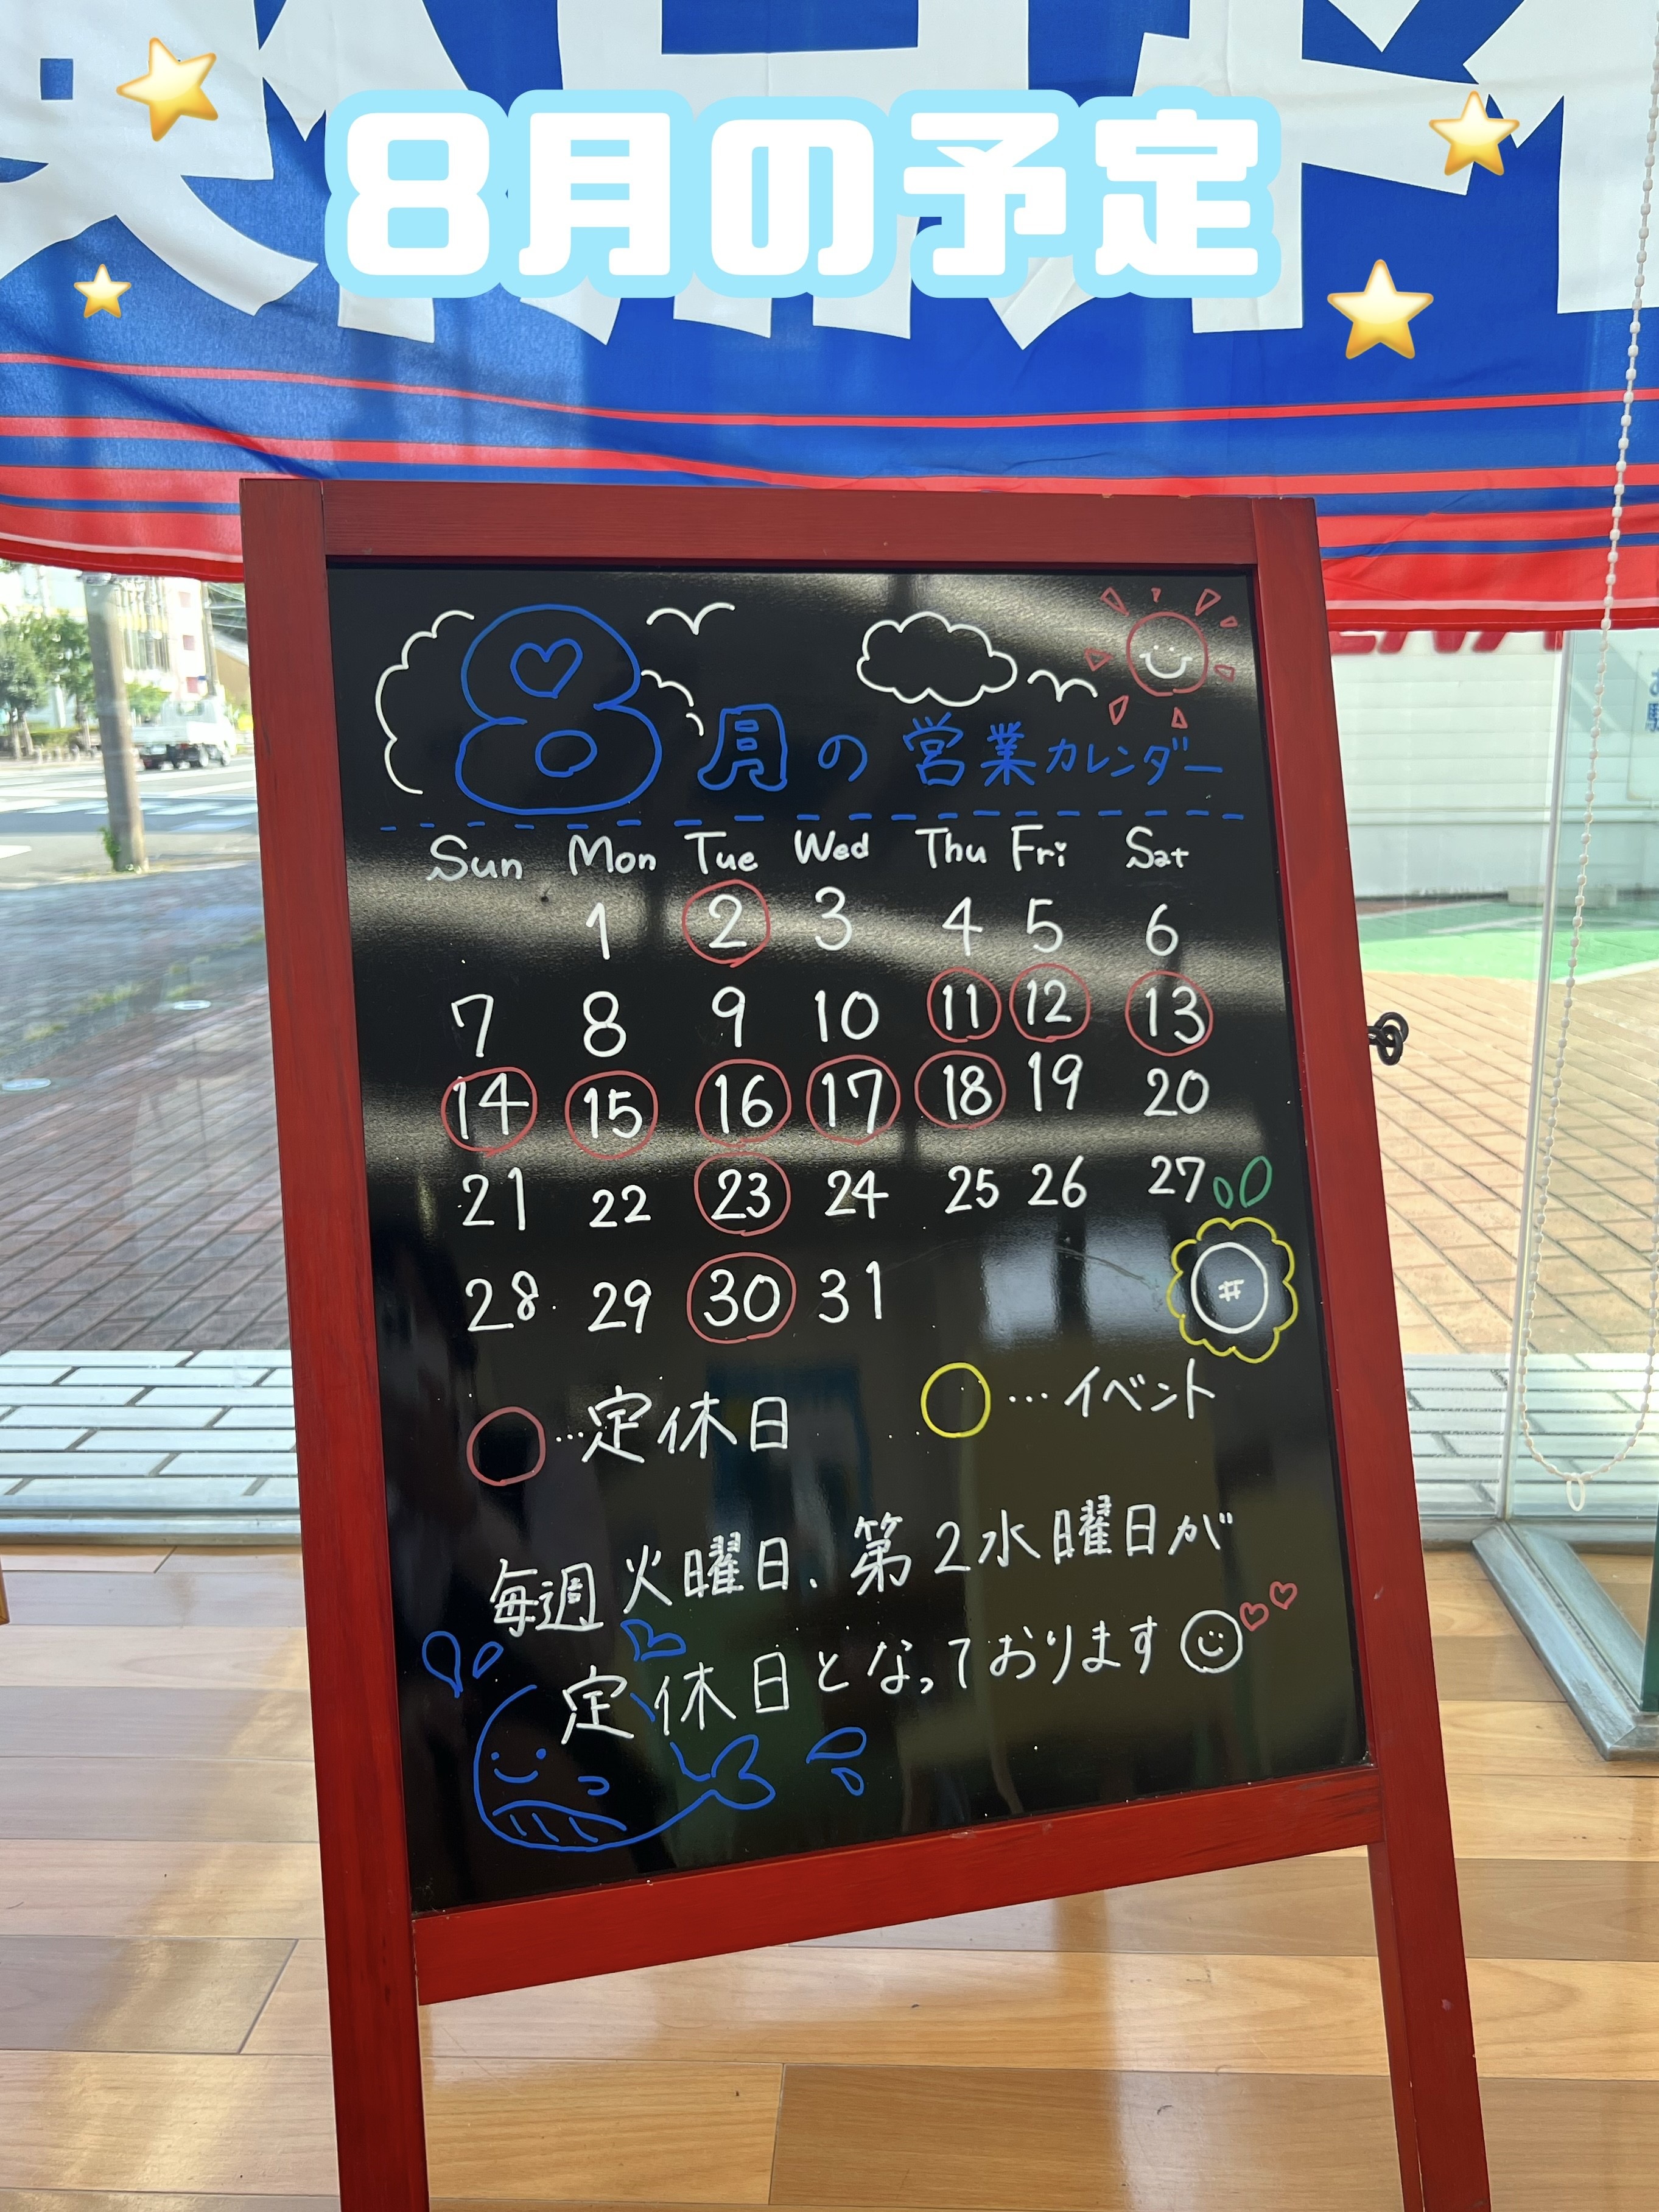 8月の予定
8月の営業カレンダー
Sun Mon Tue Wed Thu Fri Sat
1 2 3 4 5 6
7 8 9 10 11 12 13
14 15 16 17 18 19 20
21 22 23 24 25 26 27
28 29 30 31
…定休日 …イベント
毎週火曜日、第2水曜日が
定休日となっております